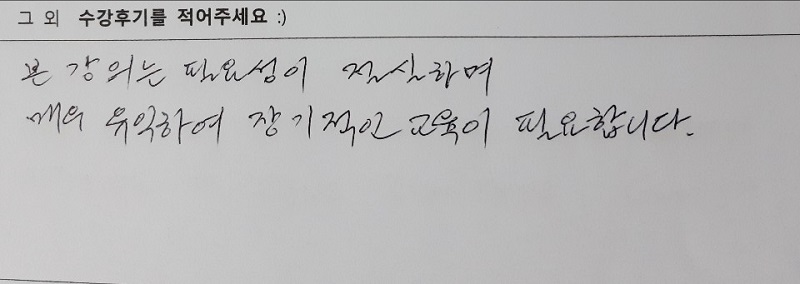 그 외 수강후기를 적어주세요 :)
본 강의는 필요성이 절실하며
매우 유익하여 장기적인 교육이 필요합니다.